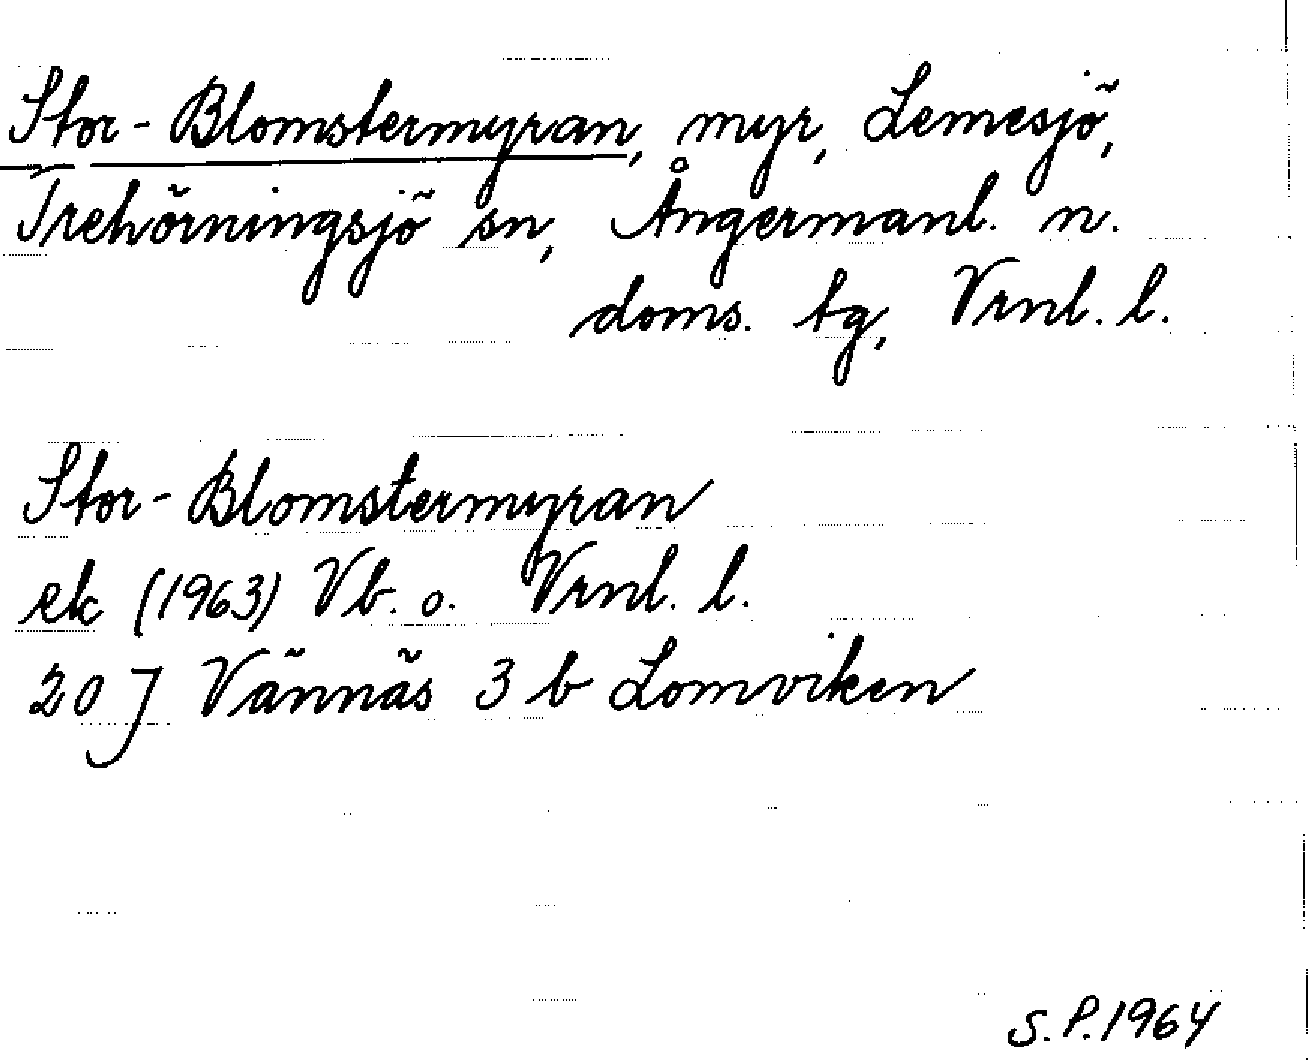 Stor-Blomstermyran, myr, Lemesjö,
Trehörningsjö sn, Ångermanl. n.
doms. tg, Vrnl. l.
Stor-Blomstermyran
ek (1963) Vb. o. Vrnl. l.
20 J Vännäs 3 b Lomviken
S.P.1964